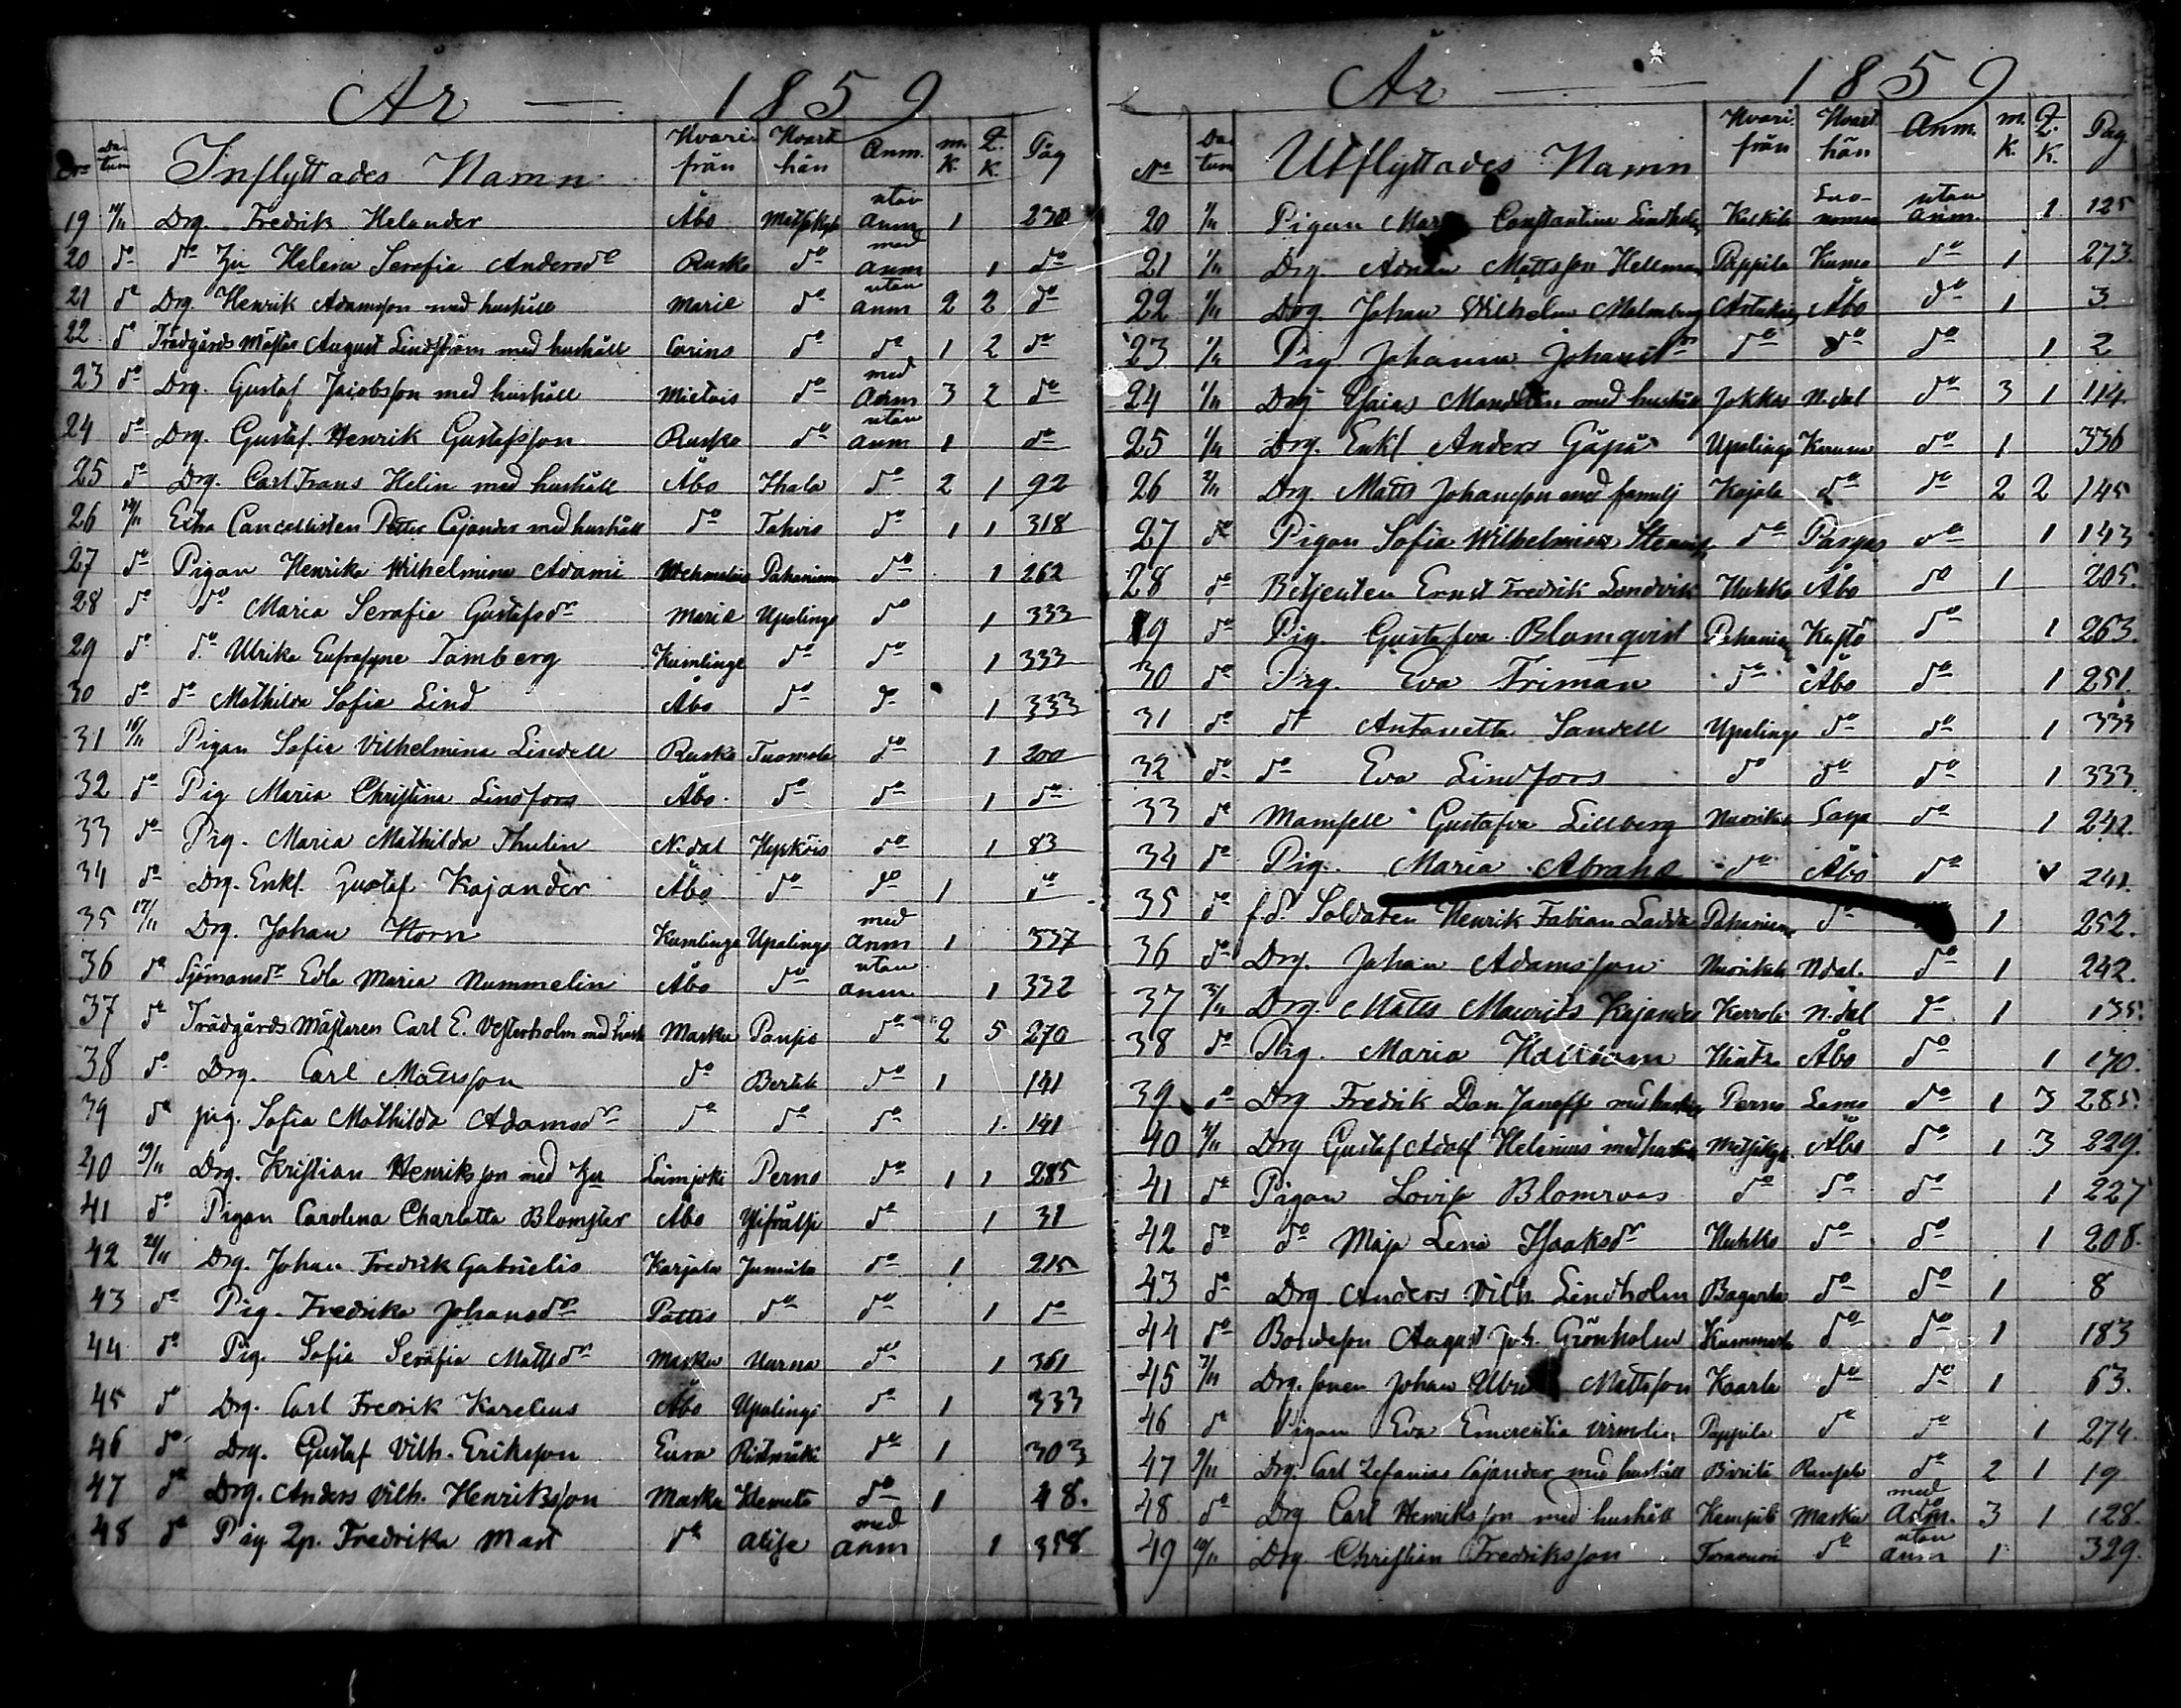 År — 1859
Nro Datum Inflyttades Namn Hvarifrån Hvarthän Anm. m.K. Q.K. Pag
19 10/11 Drg. Fredrik Helander Åbo utan anm 1 230
20 do do Helena Serafia Andersdr Rusko do med anm 1 do
21 do Drg. Henrik Adamsson med hushåll Marie do utan anm 2 2 do
22 do Trädgårds Mästar August Lindström med hushåll Corins do do 1 2 do
23 do Drg. Gustaf Jacobsson med hushåll Mietois do med anm 3 2 do
24 do Drg. Gustaf Henrik Gustafsson Rusko do utan anm 1 do
25 do Drg. Carl Frans Helin med hushåll Åbo Ihala do 2 1 92
26 14/11 Extra Cancellisten Petter Cajander med hushåll do Tahvis do 1 1 318
27 do Pigan Henrika Wilhelmina Adami Wehmalais Pahaniemi do 1 262
28 do do Maria Serafia Gustafsdr Marie Upalinge do 1 333
29 do do Ulrika Eufrosyne Tamberg Kumlinge do do 1 333
30 do do Mathilda Sofia Lind Åbo do do 1 333
31 16/11 Pigan Sofia Vilhelmina Lindell Rusko Tuomola do 1 200
32 do Pig Maria Christina Lindfors Åbo do do 1 do
33 do Pig. Maria Mathilda Thulin N.dal Hypköis do 1 83
34 do Drg. Enkl. Gustaf Kajander Åbo do do 1 do
35 17/11 Drg. Johan Horn Kumlinge Upalinge med anm 1 337
36 do Sjömansdr Edla Maria Nummelin Åbo do utan anm 1 332
37 do Trädgårds Mästaren Carl E. Vesterholm med hush Masku Panpis do 2 5 270
38 do Drg. Carl Mattsson do Bertik do 1 141
39 do pig. Sofia Mathilda Adamsdr do do do 1 141
40 19/11 Drg. Kristian Henriksson med Loimjoki Perno do 1 1 285
41 do Pigan Carolina Charlotta Blomster Åbo Ylifrälse do 1 31
42 21/11 Drg. Johan Fredrik Gabrielis Karjala Jumuta do 1 215
43 do Pig. Fredrika Johansdr Pattis do do 1 do
44 do Pig. Sofia Serafia Mattsdr Masku Uurna do 1 361
45 do Drg. Carl Fredrik Karelius Åbo Upalinge do 1 333
46 do Drg. Gustaf Vilh. Eriksson Eura Ristmäki do 1 303
47 do Drg. Anders Vilh. Henriksson Masku Klemets do 1 48.
48 do Pig. Fredrika Mart do Alise med anm 1 358
År — 1859
No Datum Utflyttades Namn Hvarifrån Hvarthän Anm. m.K. Q.K. Pag
20 1/11 Pigan Maria Constantina Lindholm Kaskela utan anm. 1 125
21 1/11 Drg. Adrian Mattsson Hellman Pappila Kumo do 1 273
22 1/11 Drg. Johan Wilhelm Malmberg Artukais Åbo do 1 3
23 1/11 Pig. Johanna Johansdr do do do 1 2
24 1/11 Drg Esaias Mandelin med hushåll Jokkas N.dal do 3 1 114.
25 1/11 Drg. Enkl Anders Gåpå Upalinge Karuna do 1 336
26 2/11 Drg. Matts Johansson med familj Kajala do do 2 2 145
27 do Pigan Sofia Wilhelmina do Pargas do 1 143
28 do Betjenten Ernst Fredrik Landvik Huhko Åbo do 1 205.
29 do Pig. Gustafva Blomqvist Pahaniemi Kustö do 1 263.
30 do Pig. Eva Friman do Åbo do 1 251.
31 do do Antonetta Sandell Upalinge do do 1 333
32 do do Eva Lindfors do do do 1 333.
33 do Mamsell Gustafva Lillberg Nuorikala Sagu do 1 242.
34 do Pig. Maria Abrahd do Åbo do 241.
35 do f.d. Soldaten Henrik Fabian Ladda Pahaniemi do 1 252.
36 do Drg. Johan Adamsson Nuorikala N.dal. do 1 242.
37 3/11 Drg. Matts Maurits Kajander Kerrola N.dal do 1 135.
38 do Pig. Maria Hallbom Åbo do 1 170.
39 do Drg Fredrik Dan. Janeff med hushåll Perno Lemo do 1 3 285.
40 4/11 Drg Gustaf Adolf Helenius med hushåll Åbo do 1 3 229.
41 do Pigan Lovisa Blomroos do do do 1 227
42 do do Maja Lena Isaaksdr Huhko do do 1 208.
43 do Drg Anders Vilh. Lindholm Bagarla do do 1 8
44 do Bondeson August Joh. Grönholm do do 1 183
45 7/11 Drg. sonen Johan Mattsson Kaarla do do 1 63.
46 do Pigan Eva Emerentia Virmelin Pappila do do 1 274.
47 9/11 Drg. Carl Zefanias Cajander med hushåll do 2 1 19
48 do Drg Carl Henriksson med hushåll Masku med Anm. 3 1 128.
49 10/11 Drg Christian Fredriksson do utan anm 1 329.